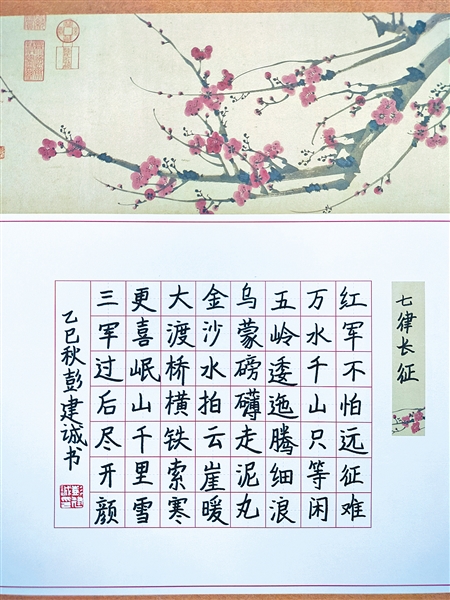 七律长征
红军不怕远征难
万水千山只等闲
五岭逶迤腾细浪
乌蒙磅礴走泥丸
金沙水拍云崖暖
大渡桥横铁索寒
更喜岷山千里雪
三军过后尽开颜
乙巳秋彭建诚书